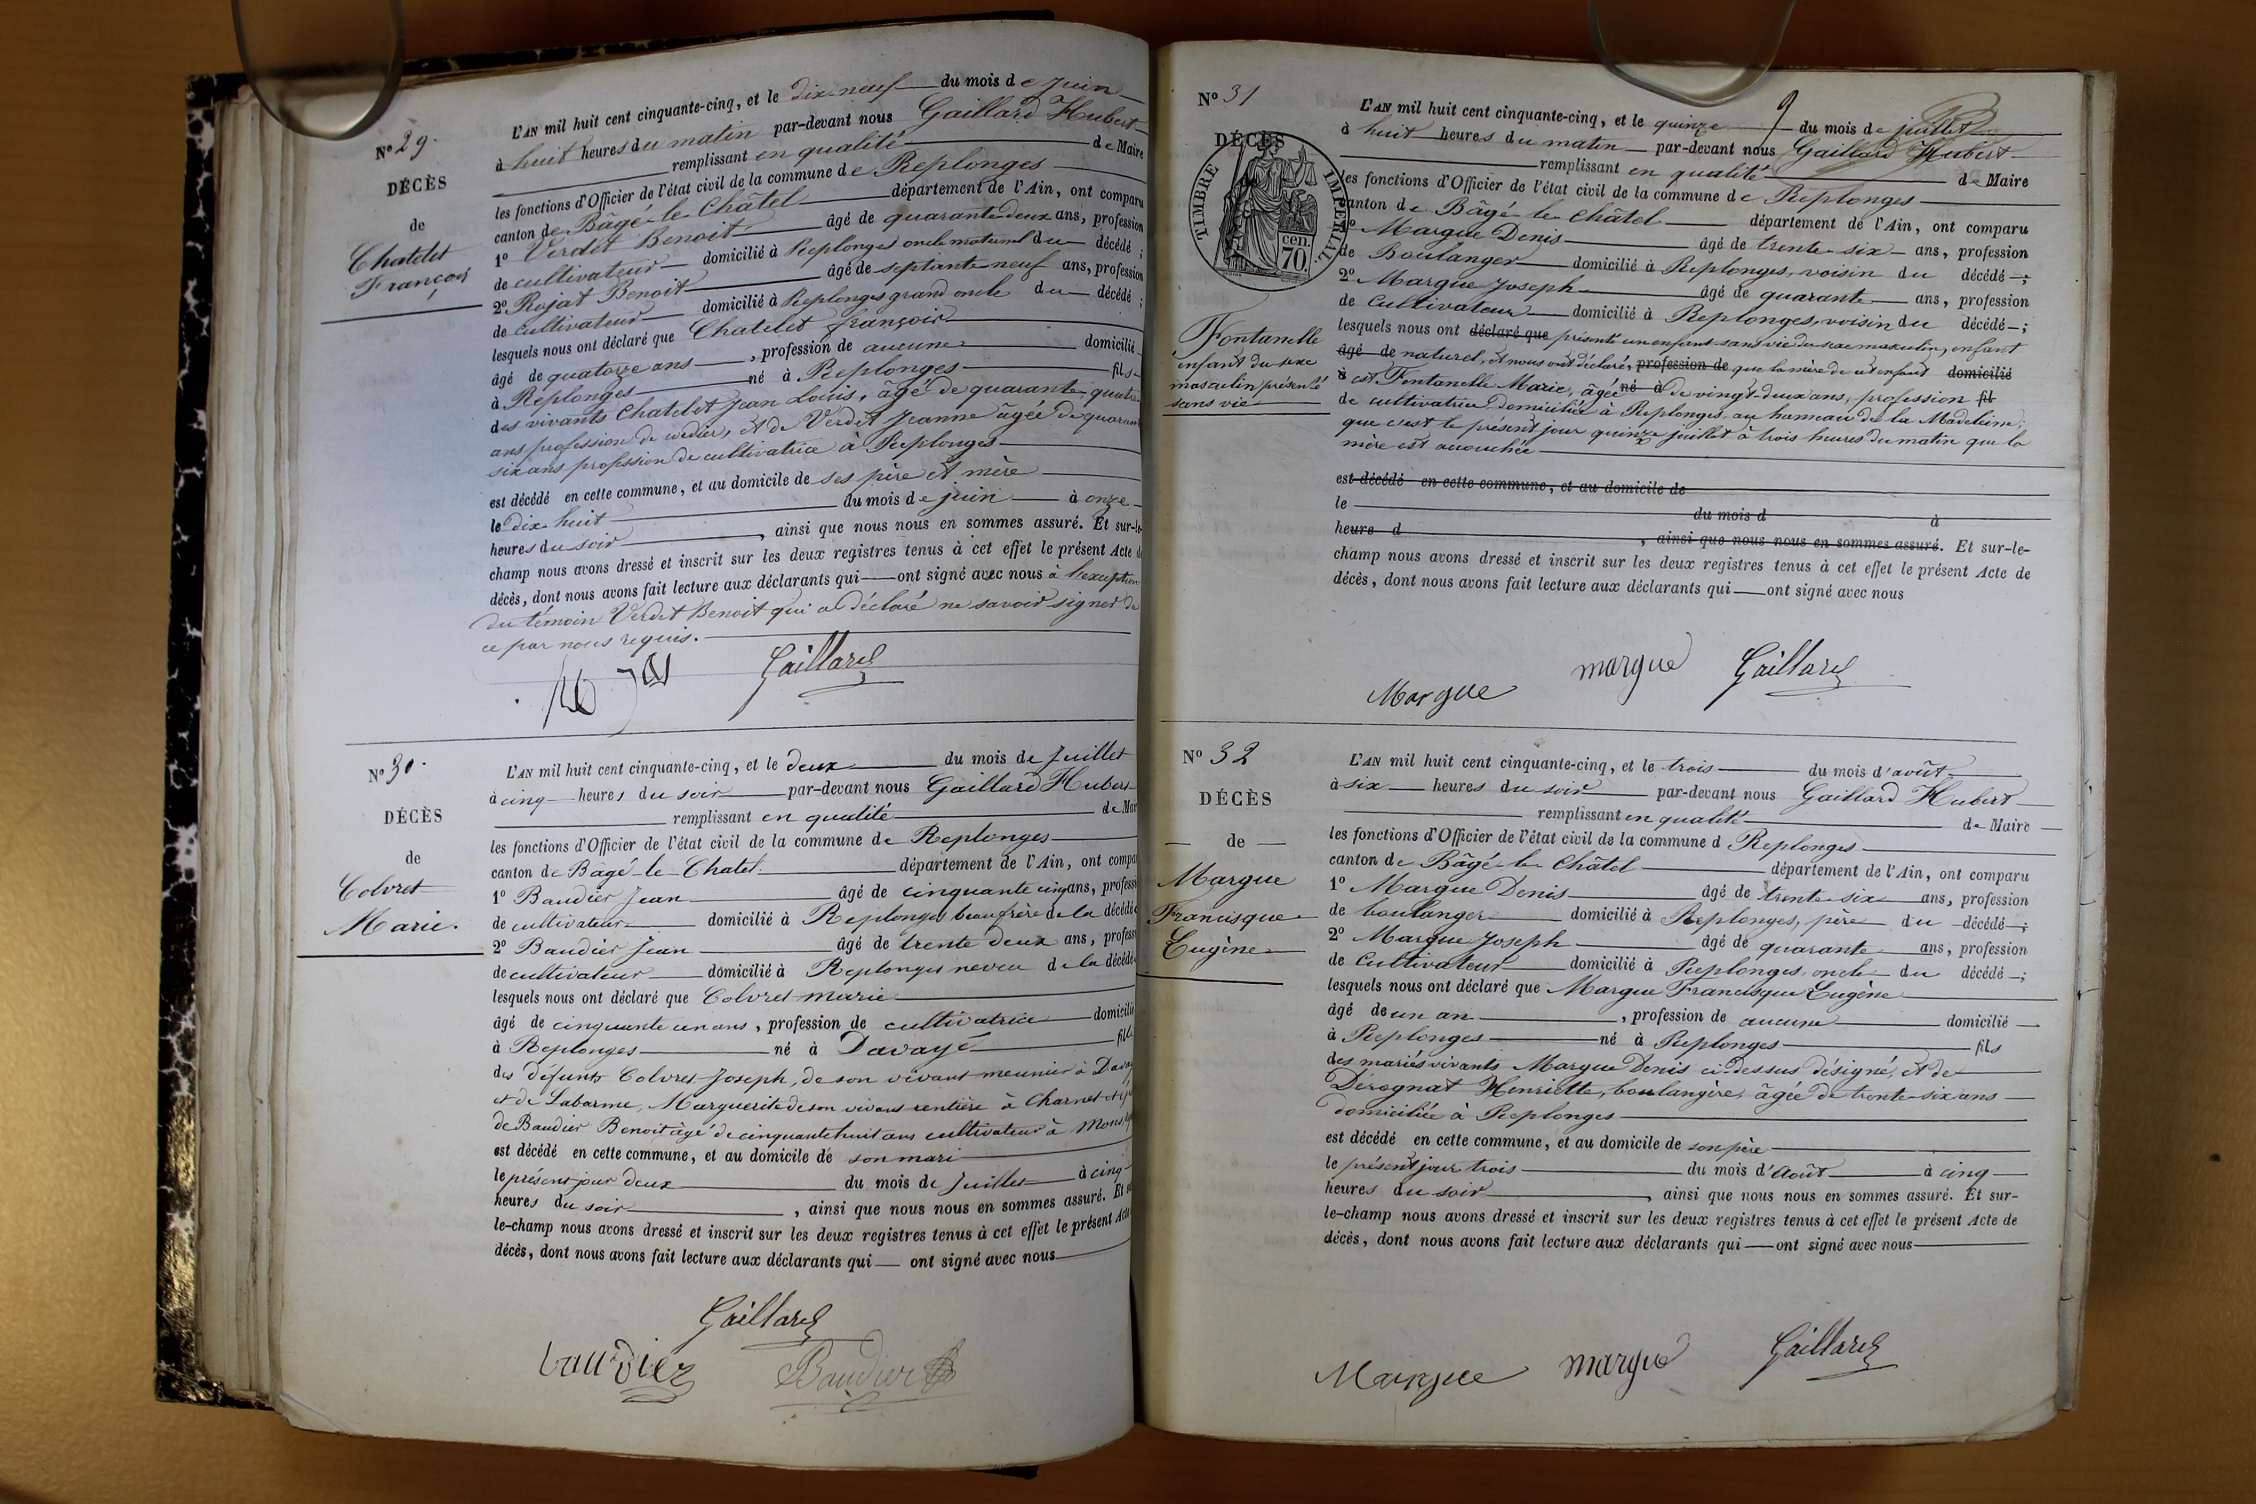 No 29.
DÉCÈS
de
Chatelet
François
L'AN mil huit cent cinquante-cinq, et le dix-neuf du mois de Juin
à huit heures du matin par-devant nous Gaillard Hubert
remplissant en qualité de Maire
les fonctions d'Officier de l'état civil de la commune de Replonges
canton de Bâgé-le-Châtel département de l'Ain, ont comparu
1º Verdet Benoit âgé de quarante-deux ans, profession
de cultivateur domicilié à Replonges oncle maternel du décédé ;
2º Rojat Benoit âgé de septante neuf ans, profession
de cultivateur domicilié à Replonges grand oncle du décédé ;
lesquels nous ont déclaré que Chatelet françois
âgé de quatorze ans, profession de aucune domicilié
à Replonges né à Replonges fils
des vivants Chatelet Jean Louis, âgé de quarante-quatre
ans profession de , et de Verdet Jeanne âgée de quarante
six ans profession de cultivatrice à Replonges
est décédé en cette commune, et au domicile de ses père et mère
le dix-huit du mois de juin à onze
heures du soir, ainsi que nous nous en sommes assuré. Et sur-le-
champ nous avons dressé et inscrit sur les deux registres tenus à cet effet le présent Acte de
décès, dont nous avons fait lecture aux déclarants qui ont signé avec nous à l'exception
du témoin Verdet Benoit qui a déclaré ne savoir signer de
ce par nous requis.
Gaillard
No 30.
DÉCÈS
de
Colvret
Marie.
L'AN mil huit cent cinquante-cinq, et le deux du mois de Juillet
à cinq heures du soir par-devant nous Gaillard Hubert
remplissant en qualité de Mai
les fonctions d'Officier de l'état civil de la commune de Replonges
canton de Bâgé-le-Chatel département de l'Ain, ont compa
1º Baudier Jean âgé de cinquante cinq ans, professi
de cultivateur domicilié à Replonges beaufrère de la décédé
2º Baudier Jean âgé de trente deux ans, profess
de cultivateur domicilié à Replonges neveu de la décédé
lesquels nous ont déclaré que Colvret marie
âgé de cinquante un ans, profession de cultivatrice domicilié
à Replonges né à Davayé fille
des défunts Colvret Joseph, de son vivant meunier à Davay
et de Labarme, Marguerite de son vivant rentière à Charnet et
de Baudier Benoit âgé de cinquante huit ans cultivateur à
est décédé en cette commune, et au domicile de son mari
le présent jour deux du mois de Juillet à cinq
heures du soir, ainsi que nous nous en sommes assuré. Et su
le-champ nous avons dressé et inscrit sur les deux registres tenus à cet effet le présent Acte
décès, dont nous avons fait lecture aux déclarants qui ont signé avec nous
Gaillard
baudier Baudier
No 31
DÉCÈS
TIMBRE IMPÉRIAL
cen.
70.
Fontanelle
enfant du sexe
masculin présenté
sans vie
9
L'AN mil huit cent cinquante-cinq, et le quinze du mois de juillet
à huit heures du matin par-devant nous Gaillard Hubert
remplissant en qualité de Maire
les fonctions d'Officier de l'état civil de la commune de Replonges
canton de Bâgé-le-Châtel département de l'Ain, ont comparu
1º Margue Denis âgé de trente-six ans, profession
de Boulanger domicilié à Replonges, voisin du décédé ;
2º Margue Joseph âgé de quarante ans, profession
de Cultivateur domicilié à Replonges, voisin du décédé ;
lesquels nous ont déclaré que présenté un enfant sans vie du sexe masculin, enfant
âgé de naturel, et nous ont déclaré, profession de que la mère de cet enfant domicilié
à est Fontanelle Marie, âgée né à de vingt-deux ans, profession fil
de cultivatrice domiciliée à Replonges, au hameau de la Madeleine;
que c'est le présent jour quinze juillet à trois heures du matin que la
mère est accouchée
est décédé en cette commune, et au domicile de
le du mois d à
heure d , ainsi que nous nous en sommes assuré. Et sur-le-
champ nous avons dressé et inscrit sur les deux registres tenus à cet effet le présent Acte de
décès, dont nous avons fait lecture aux déclarants qui ont signé avec nous
Margue margue Gaillard
No 32
DÉCÈS
de
Margue
Francisque
Eugène
L'AN mil huit cent cinquante-cinq, et le trois du mois d'août
à six heures du soir par-devant nous Gaillard Hubert
remplissant en qualité de Maire
les fonctions d'Officier de l'état civil de la commune d Replonges
canton de Bâgé-le-Châtel département de l'Ain, ont comparu
1º Margue Denis âgé de trente-six ans, profession
de boulanger domicilié à Replonges, père du décédé ;
2º Margue Joseph âgé de quarante ans, profession
de Cultivateur domicilié à Replonges, oncle du décédé ;
lesquels nous ont déclaré que Margue Francisque Eugène
âgé de un an, profession de aucune domicilié
à Replonges né à Replonges fils
des mariés vivants Margue Denis ci-dessus désigné, et de
Dérognat Henriette, boulangère, âgée de trente-six ans
domiciliée à Replonges
est décédé en cette commune, et au domicile de son père
le présent jour trois du mois d'Août à cinq
heures du soir, ainsi que nous nous en sommes assuré. Et sur-
le-champ nous avons dressé et inscrit sur les deux registres tenus à cet effet le présent Acte de
décès, dont nous avons fait lecture aux déclarants qui ont signé avec nous
Margue margue Gaillard